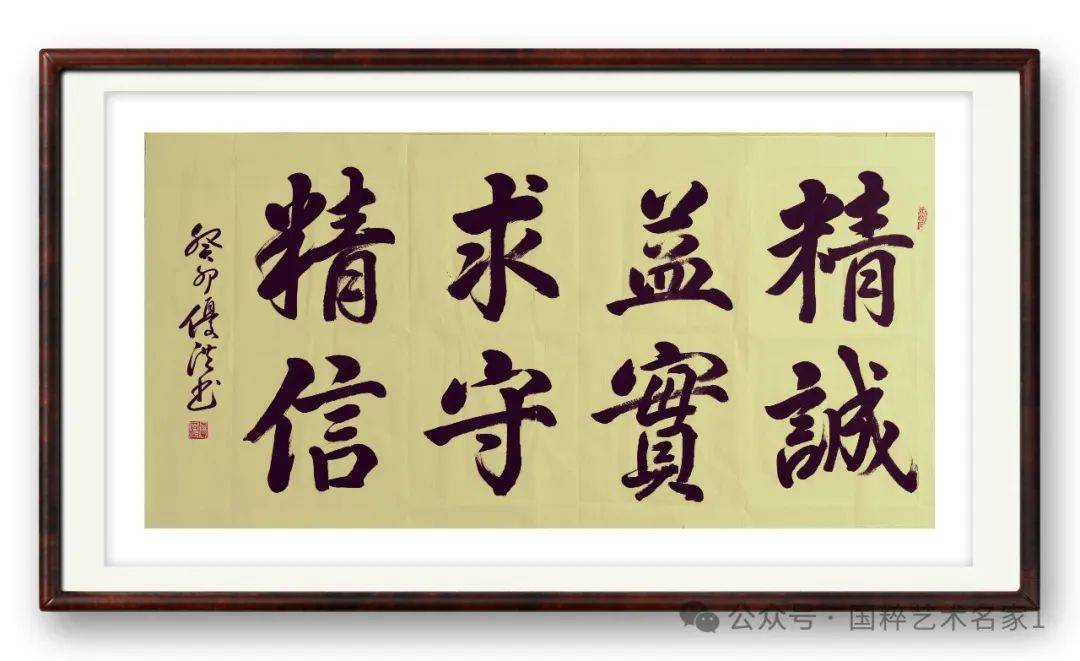 精益求精
誠實守信
癸卯優洪书
公众号 · 国粹艺术名家1